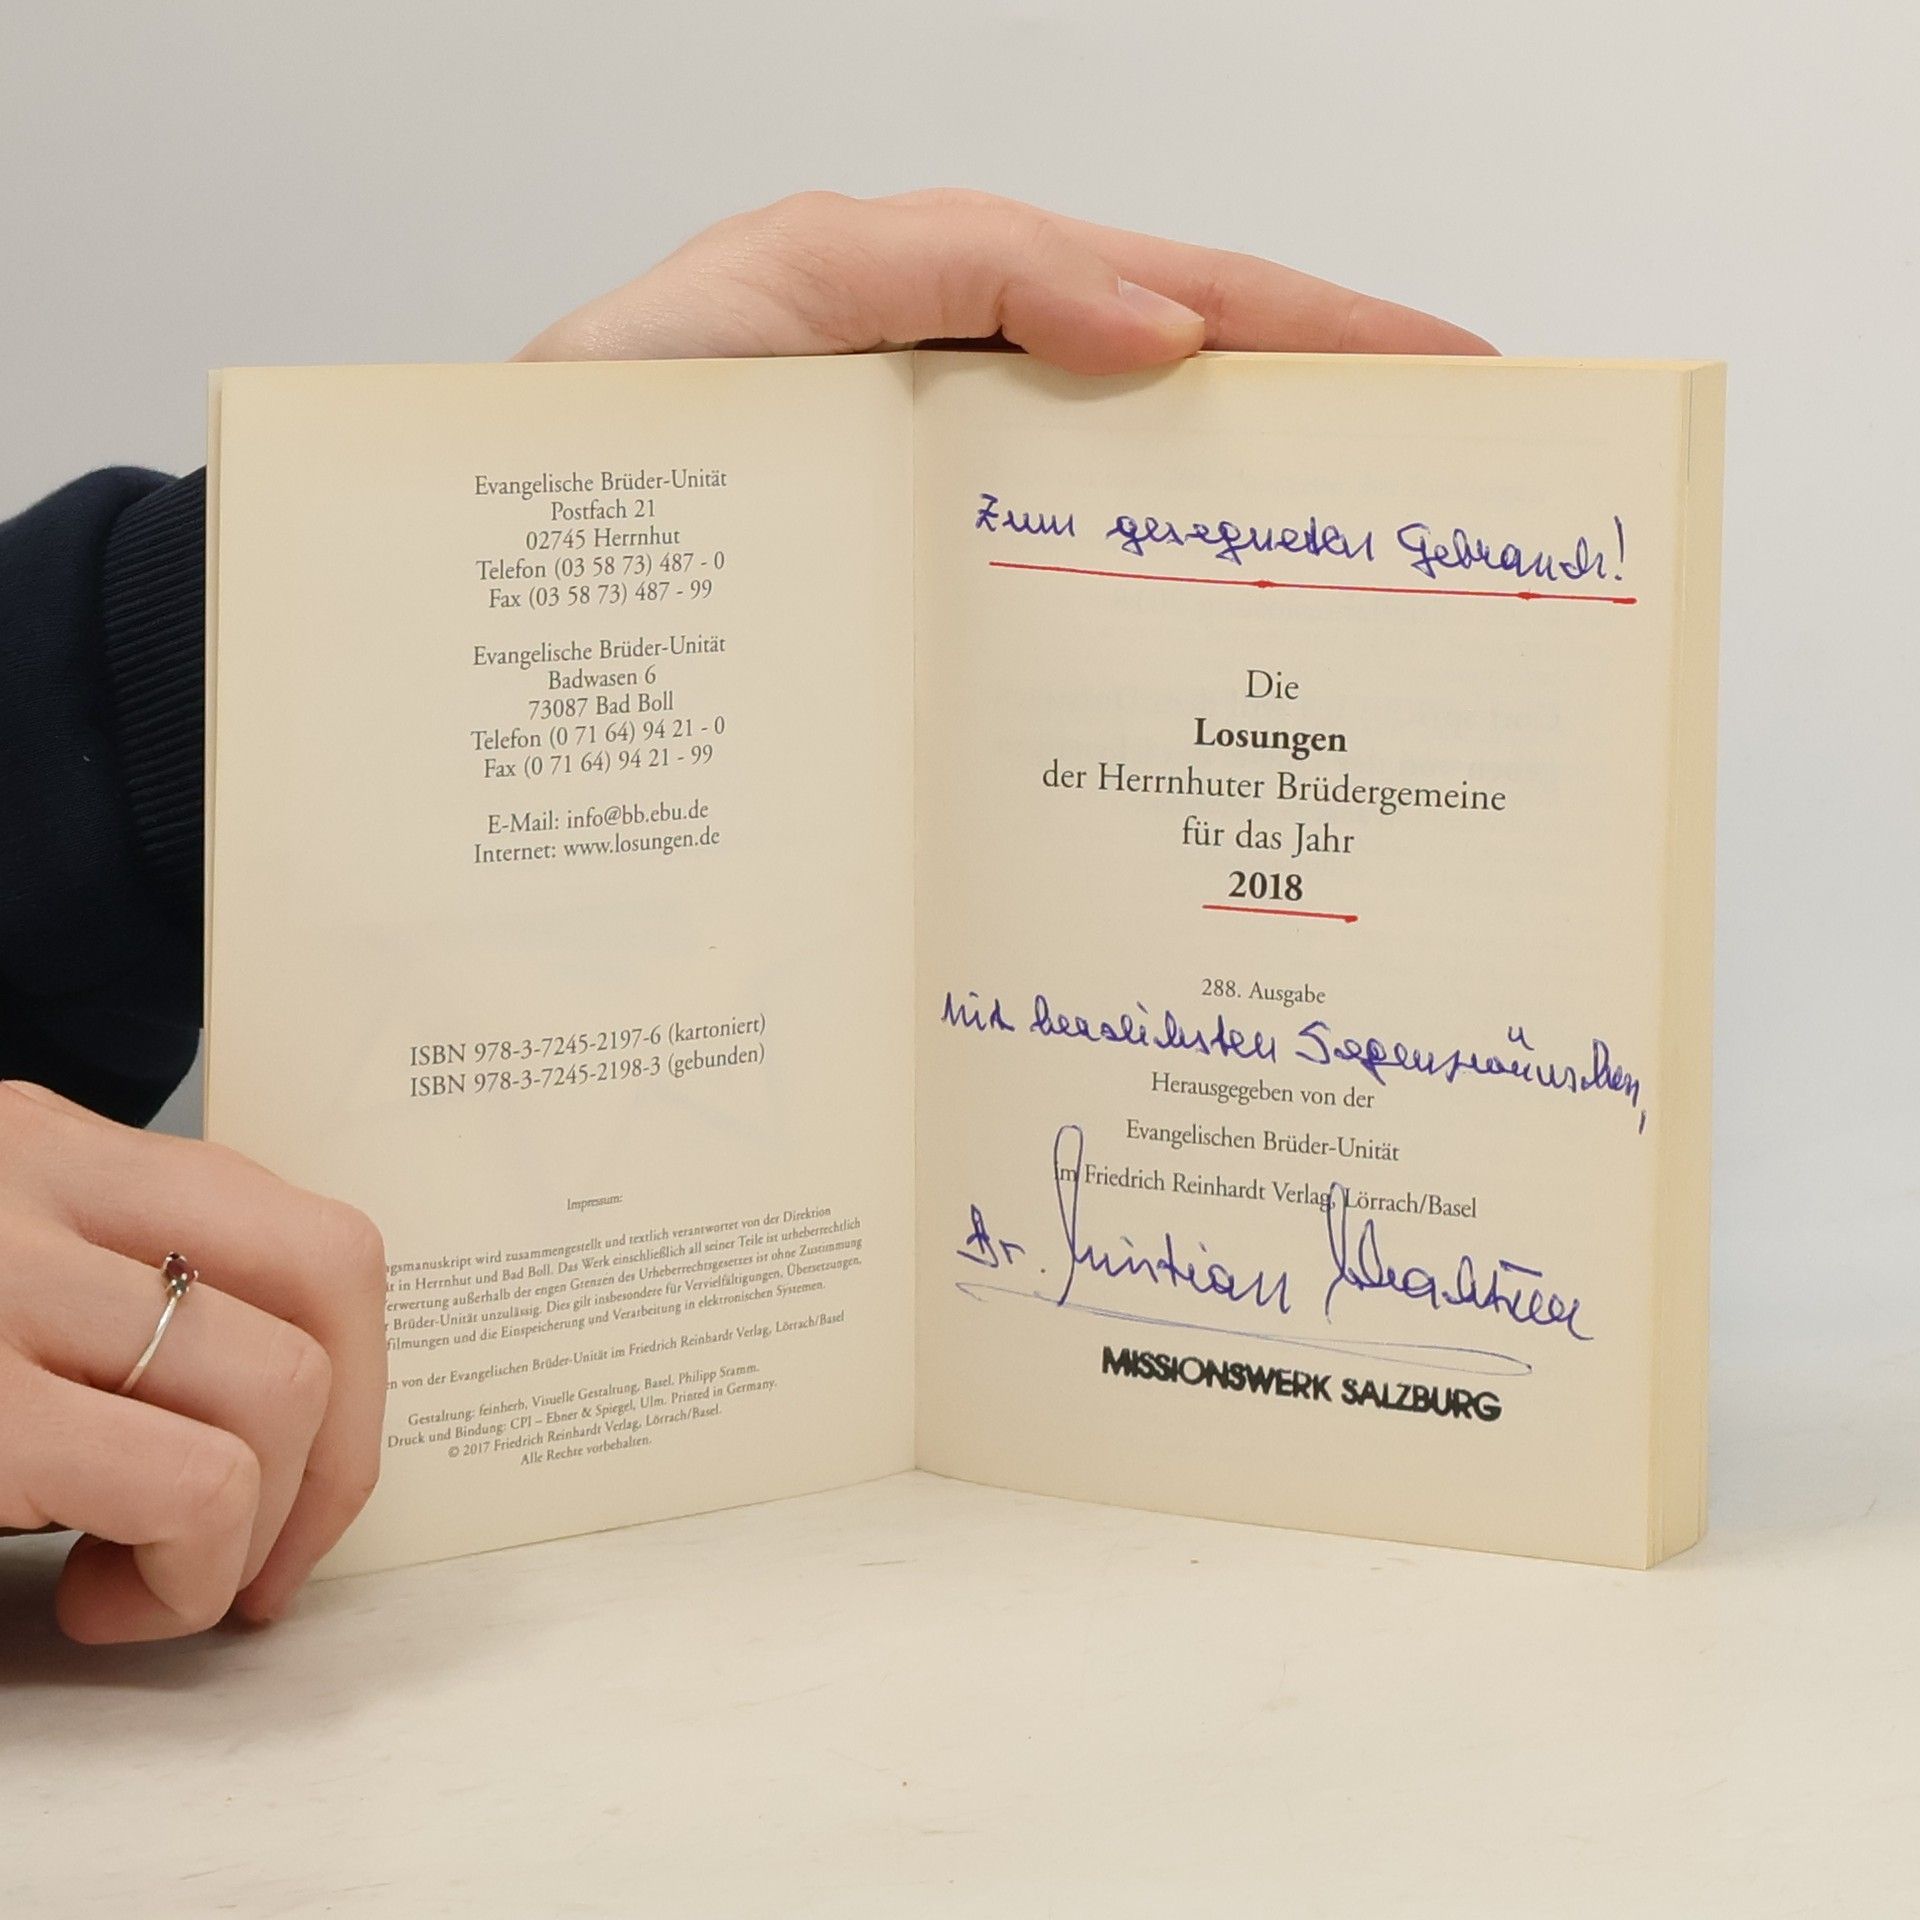 Evangelische Brüder-Unität
Postfach 21
02745 Herrnhut
Telefon (03 58 73) 487 - 0
Fax (03 58 73) 487 - 99
Evangelische Brüder-Unität
Badwasen 6
73087 Bad Boll
Telefon (0 71 64) 94 21 - 0
Fax (0 71 64) 94 21 - 99
E-Mail: info@bb.ebu.de
Internet: www.losungen.de
ISBN 978-3-7245-2197-6 (kartoniert)
ISBN 978-3-7245-2198-3 (gebunden)
Impressum:
gsmanuskript wird zusammengestellt und textlich verantwortet von der Direktion
t in Herrnhut und Bad Boll. Das Werk einschließlich all seiner Teile ist urheberrechtlich
erwertung außerhalb der engen Grenzen des Urheberrechtsgesetzes ist ohne Zustimmung
r Brüder-Unität unzulässig. Dies gilt insbesondere für Vervielfältigungen, Übersetzungen,
filmungen und die Einspeicherung und Verarbeitung in elektronischen Systemen.
n von der Evangelischen Brüder-Unität im Friedrich Reinhardt Verlag, Lörrach/Basel
Gestaltung: feinherb, Visuelle Gestaltung, Basel. Philipp Stamm.
Druck und Bindung: CPI – Ebner & Spiegel, Ulm. Printed in Germany.
© 2017 Friedrich Reinhardt Verlag, Lörrach/Basel.
Alle Rechte vorbehalten.
Zum gesegneten Gebrauch!
Die
Losungen
der Herrnhuter Brüdergemeine
für das Jahr
2018
288. Ausgabe
Mit herzlichsten Segenswünschen,
Herausgegeben von der
Evangelischen Brüder-Unität
im Friedrich Reinhardt Verlag, Lörrach/Basel
Dr. Christian
MISSIONSWERK SALZBURG